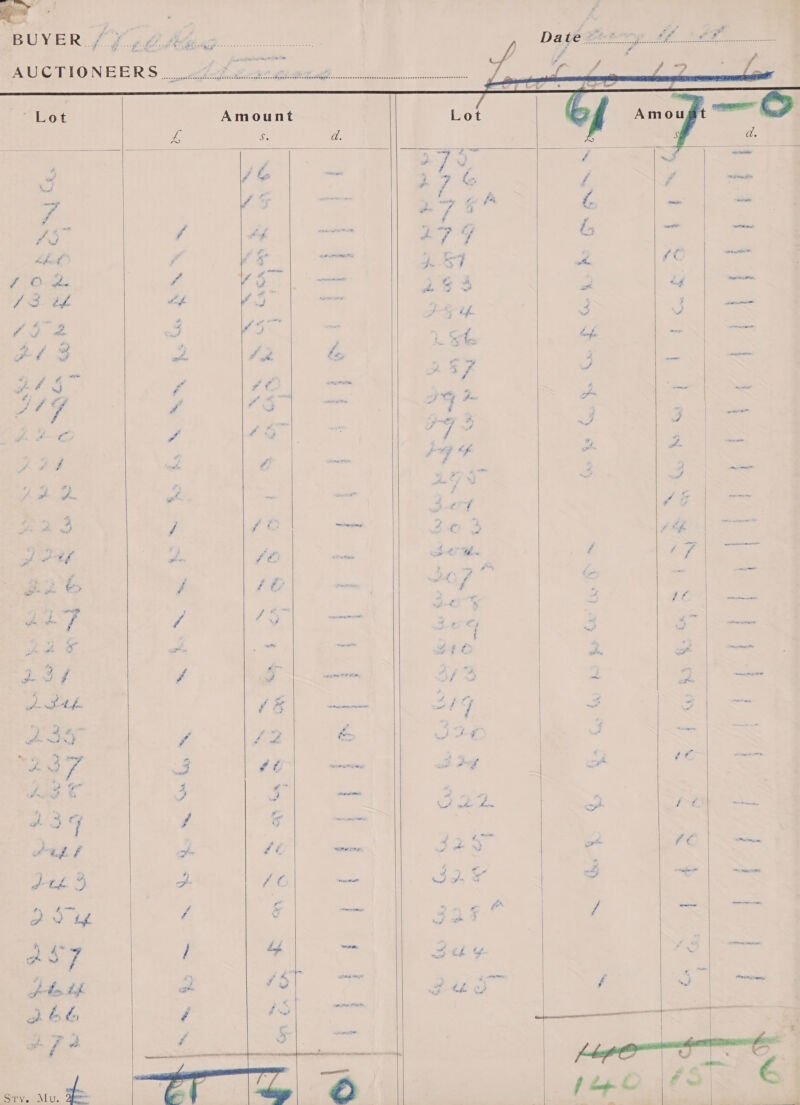 BUYER Wilkes
Date
AUCTIONEERS Stevens
Lot Amount £ s. d.
3 16 —
7 18 —
15 1 4 —
40 1 18 —
102 1 15 —
134 4 15 —
152 3 15 —
213 2 12 6
215 1 10 —
219 1 15 —
220 1 15 —
221 2 0 —
222 2 — —
223 1 10 —
224 2 10 —
226 1 10 —
227 1 15 —
228 2 — —
231 1 5 —
234 18 —
235 1 12 6
237 3 10 —
238 3 5 —
239 1 8 —
241 2 10 —
243 2 10 —
254 1 8 —
257 1 4 —
264 2 15 —
266 1 15 —
272 1 8 —
61 7 0
Sty. Mu. 2
Lot Amount £ s. d.
61 7 — 0
275 1 5 —
276 1 1 —
278A 6 — —
279 6 — —
281 2 10 —
283 2 4 —
284 3 3 —
286 4 — —
287 3 — —
292 2 — —
293 3 3 —
294 2 2 —
295 3 3 —
301 18 —
303 14 —
304 1 17 —
307A 6 — —
308 3 10 —
309 3 5 —
310 2 2 —
313 2 2 —
319 3 3 —
320 3 — —
321 2 10 —
322 2 10 —
325 2 10 —
328 3 — —
328A 1 — —
344 15 —
345 1 5 —
140 5 6
140 15 6